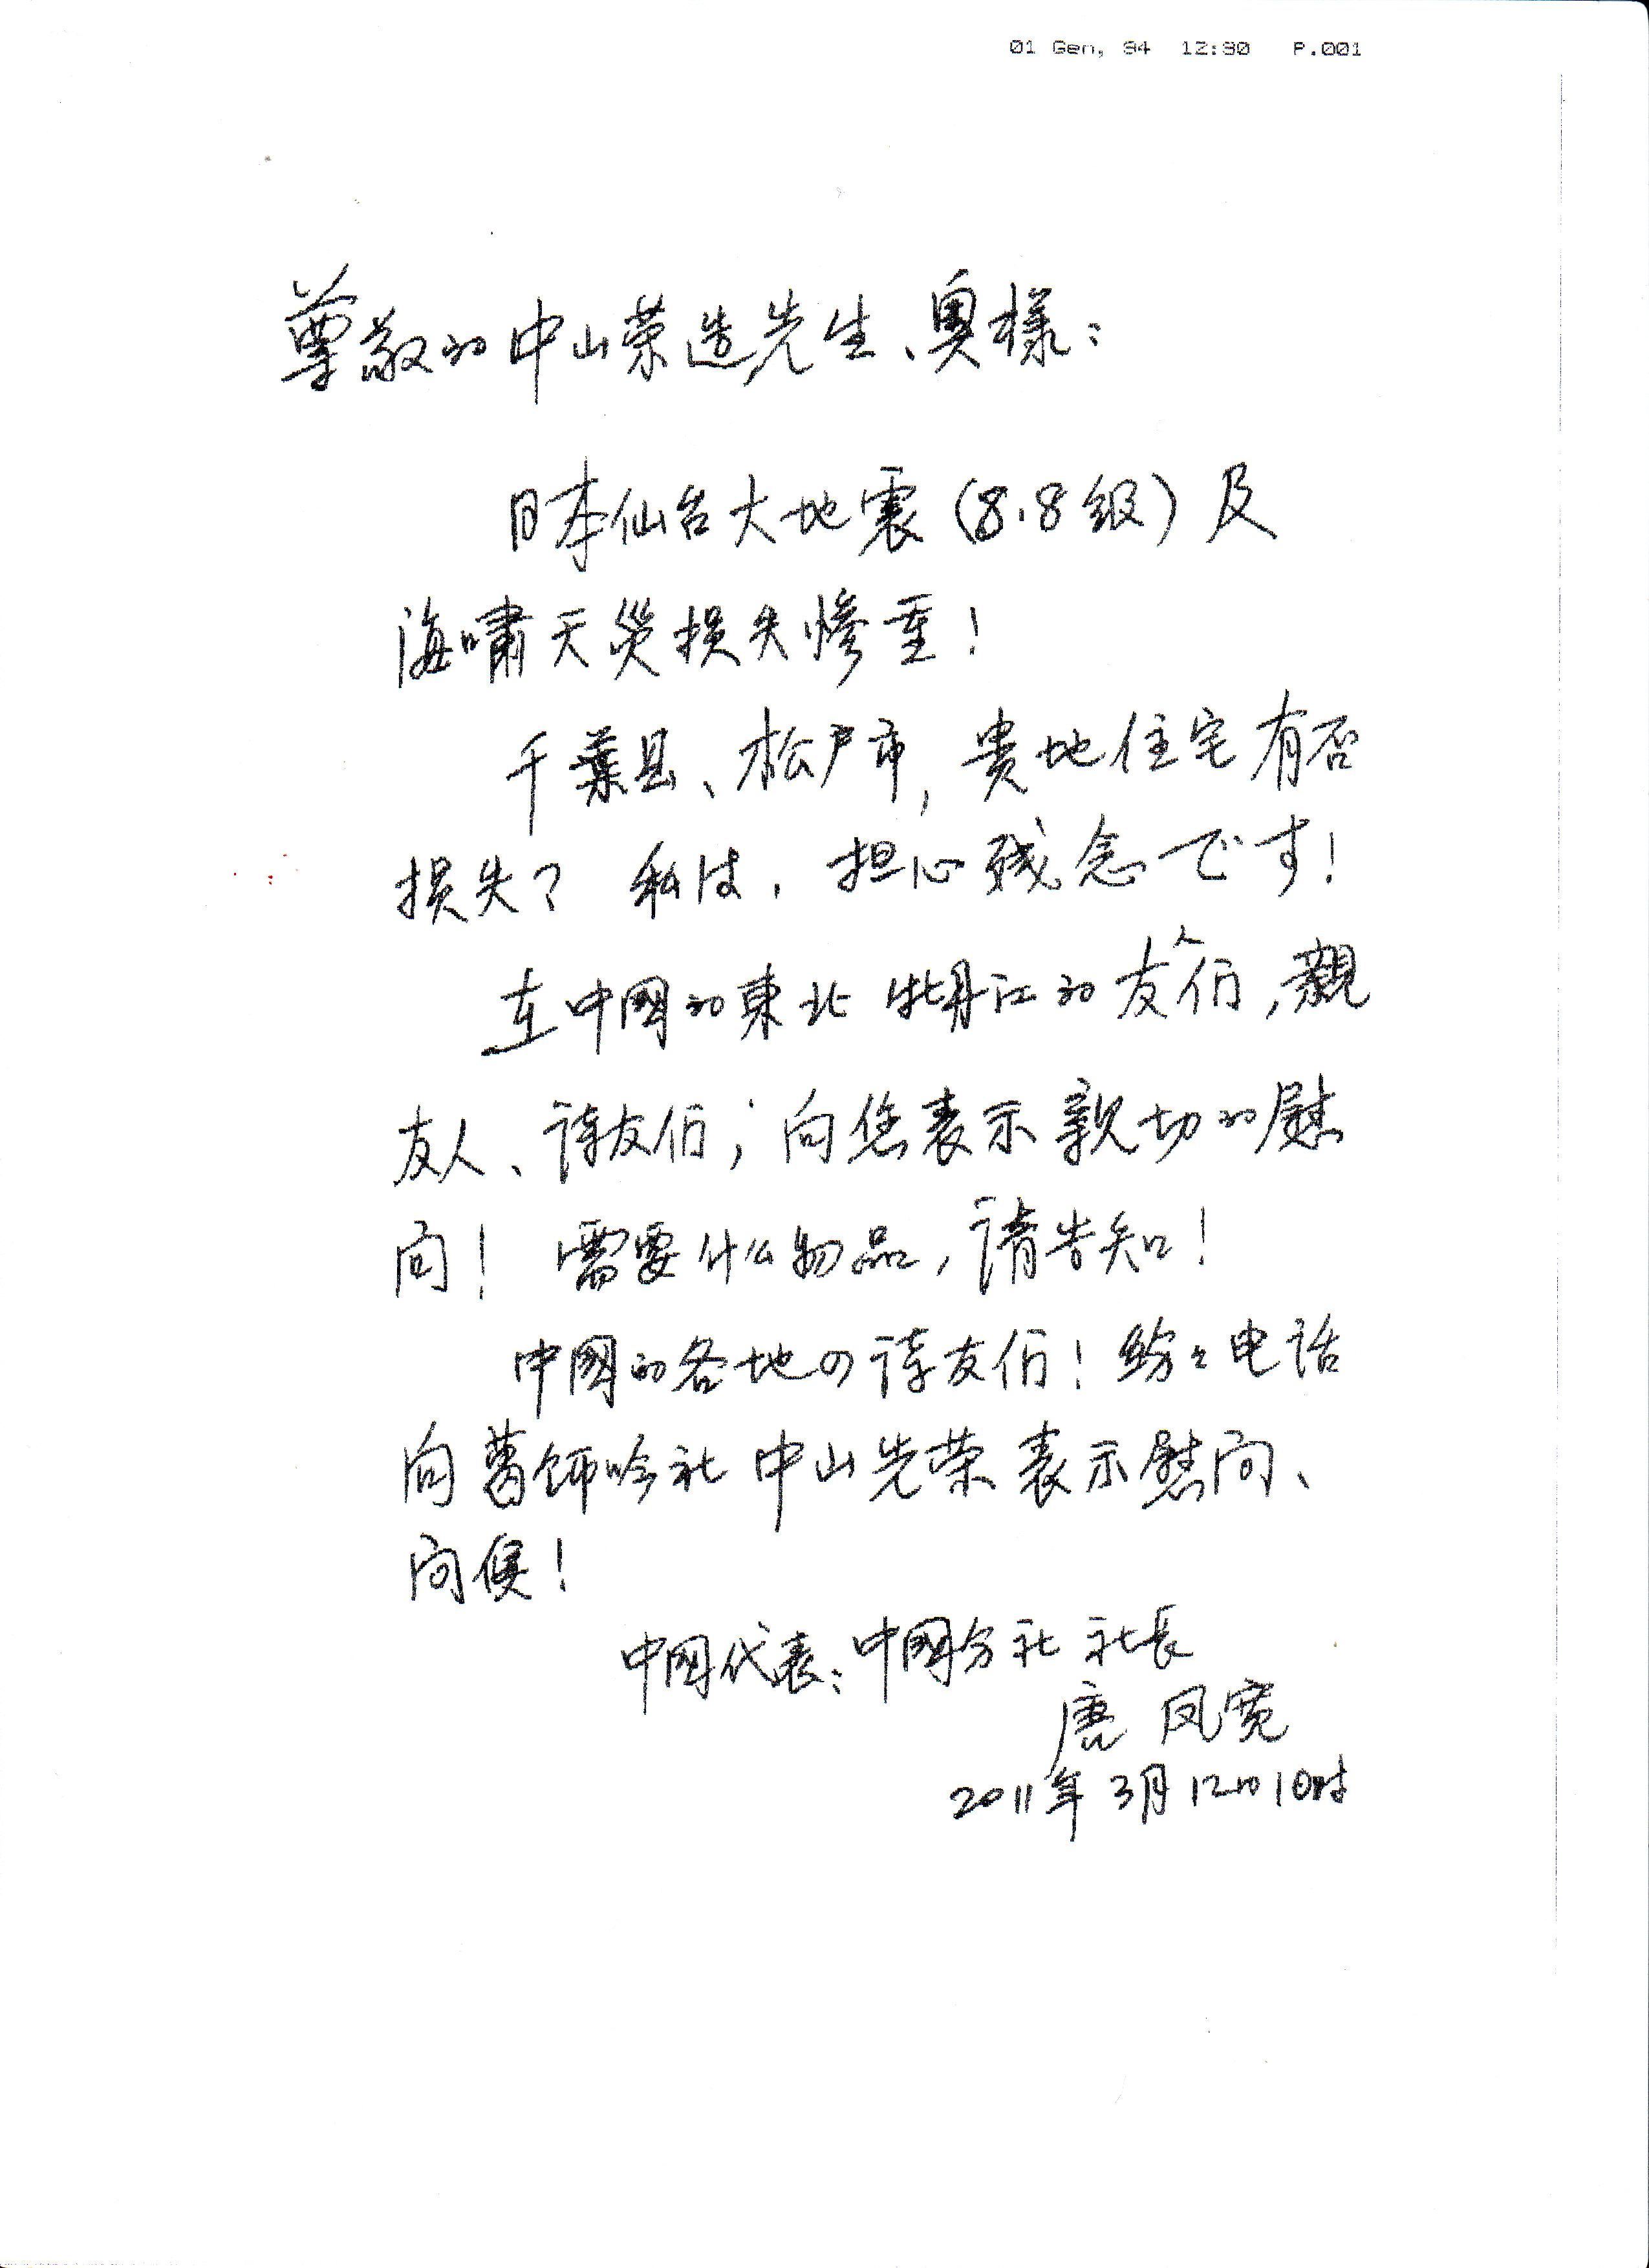 01 Gen, 94 12:30 P.001
尊敬的中山荣造先生、奥様:
日本仙台大地震(8.8级)及
海嘯天災损失惨重!
千葉县、松户市,贵地住宅有否
损失? 私は,担心残念です!
在中國的東北牡丹江的友人们,親
友人、诗友们;向您表示親切的慰
问! 需要什么物品,請告知!
中國的各地の诗友们!纷々电话
向葛飾吟社中山先荣表示慰问、
问候!
中国代表:中國分社 社長
唐 凤宽
2011年3月12日10时